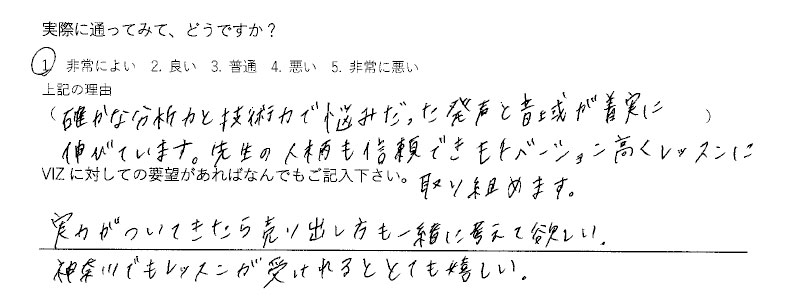 実際に通ってみて、どうですか？
1. 非常によい 2. 良い 3. 普通 4. 悪い 5. 非常に悪い
上記の理由
（確かな分析力と技術力で悩みだった発声と音域が着実に）
伸びています。先生の人柄も信頼できモチベーション高くレッスンに
取り組めます。
VIZに対しての要望があればなんでもご記入下さい。
実力がついてきたら売り出し方も一緒に考えて欲しい。
神奈川でもレッスンが受けれるととても嬉しい。